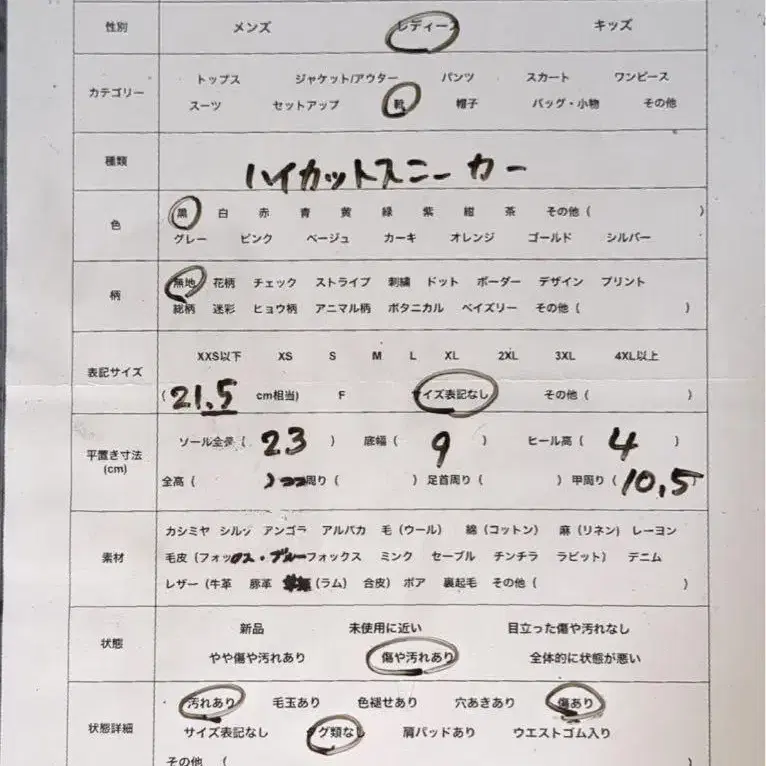 性別 メンズ レディース キッズ
カテゴリー トップス ジャケット/アウター パンツ スカート ワンピース
スーツ セットアップ 靴 帽子 バッグ・小物 その他
種類 ハイカットスニーカー
色 黒 白 赤 青 黄 緑 紫 紺 茶 その他 ( )
グレー ピンク ベージュ カーキ オレンジ ゴールド シルバー
柄 無地 花柄 チェック ストライプ 刺繍 ドット ボーダー デザイン プリント
総柄 迷彩 ヒョウ柄 アニマル柄 ボタニカル ペイズリー その他 ( )
表記サイズ XXS以下 XS S M L XL 2XL 3XL 4XL以上
( 21.5 cm相当) F サイズ表記なし その他 ( )
平置き寸法 (cm) ソール全長 ( 23 ) 底幅 ( 9 ) ヒール高 ( 4 )
全高 ( ) 周り ( ) 足首周り ( ) 甲周り ( 10.5
素材 カシミヤ シルク アンゴラ アルパカ 毛 (ウール) 綿 (コットン) 麻 (リネン) レーヨン
毛皮 (フォックス・ブルーフォックス ミンク セーブル チンチラ ラビット) デニム
レザー (牛革 豚革 (ラム) 合皮) ボア 裏起毛 その他 ( )
状態 新品 未使用に近い 目立った傷や汚れなし
やや傷や汚れあり 傷や汚れあり 全体的に状態が悪い
状態詳細 汚れあり 毛玉あり 色褪せあり 穴あきあり 傷あり
サイズ表記なし タグ類なし 肩パッドあり ウエストゴム入り
その他 ( )